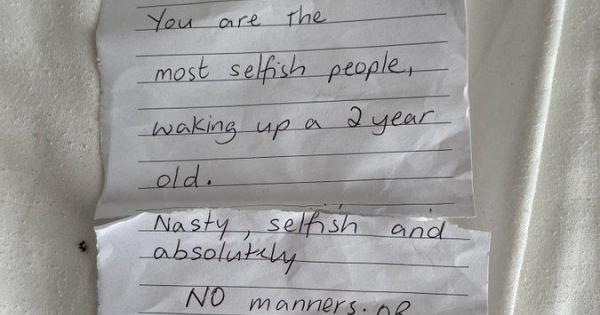 You are the
most selfish people,
waking up a 2 year
old.
Nasty, selfish and
absolutely
NO manners.